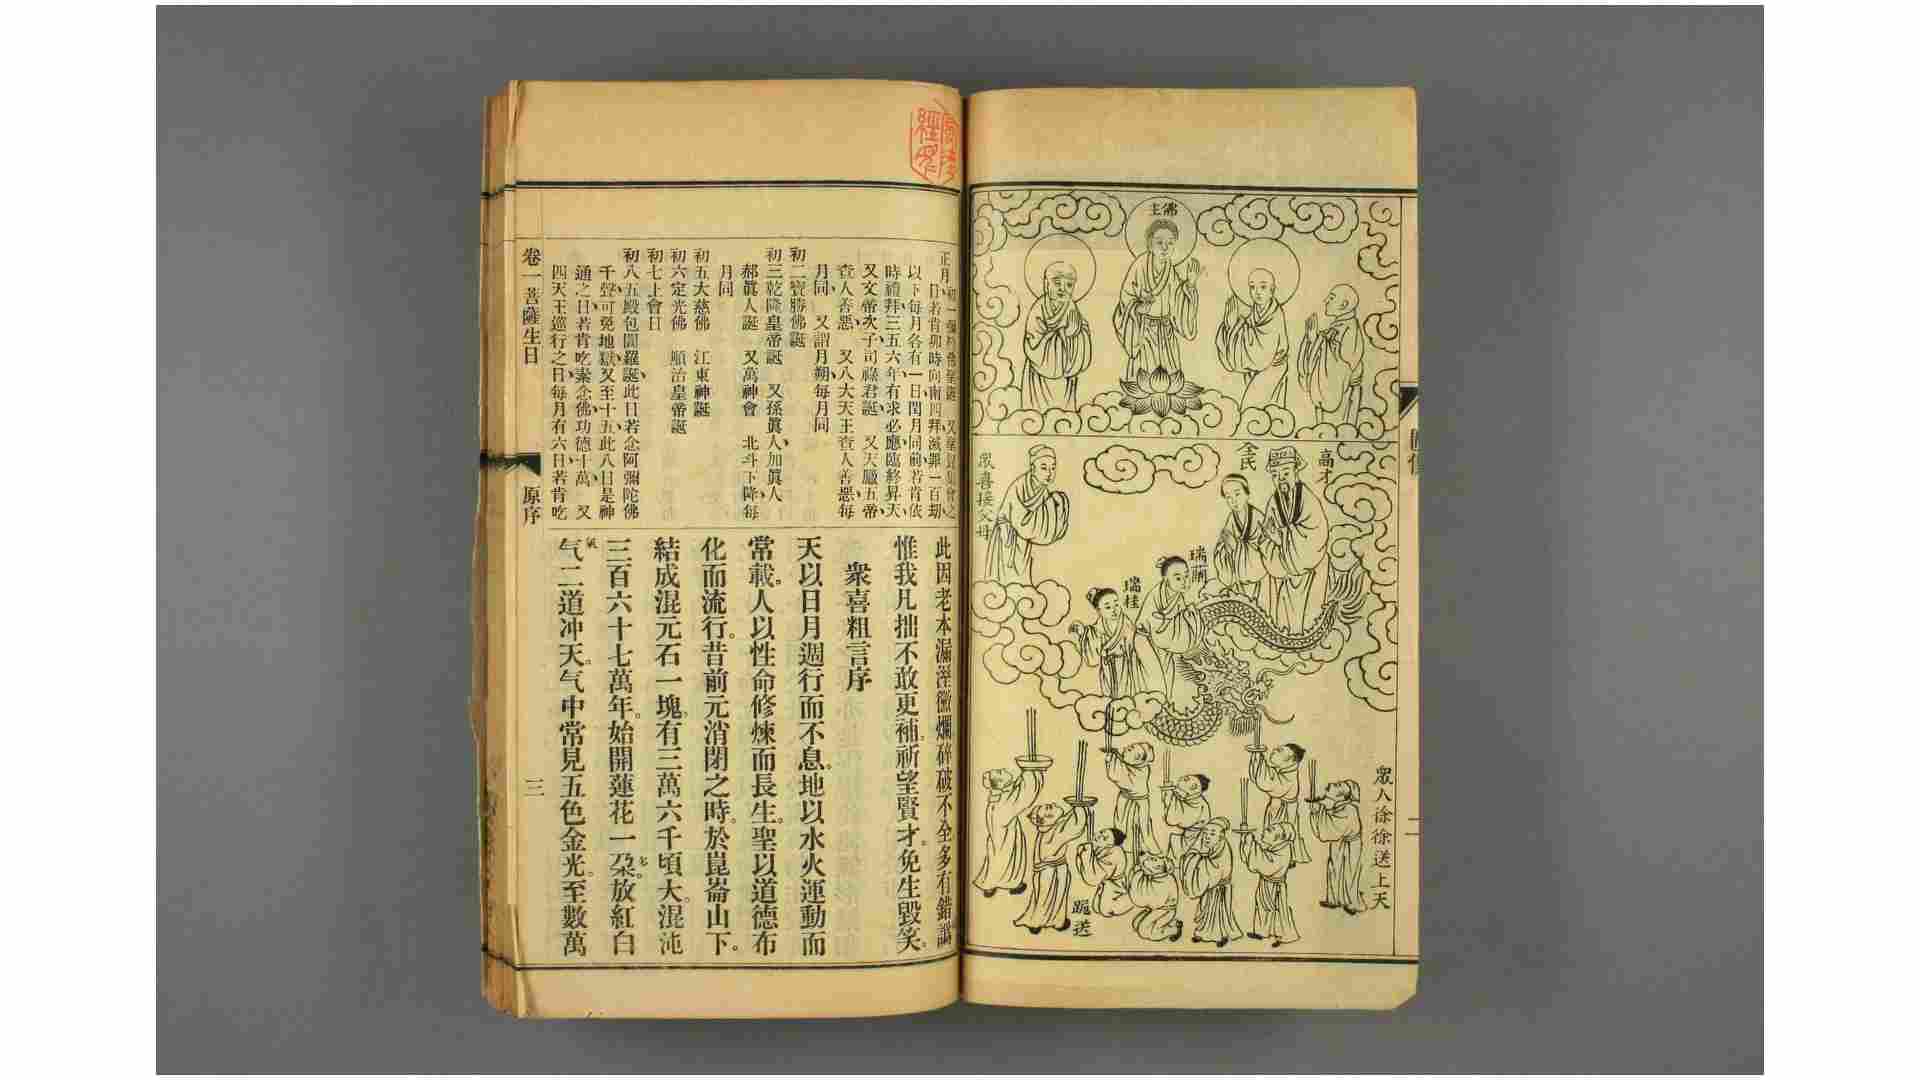 佛主
高才
全民
眾喜接父母
瑞蘭
瑞桂
眾人徐徐送上天
跪送
二
以下每月各有一日閏月同前若肯依
時禮拜三五六年有求必應臨終昇天
又文帝次子司祿君誕 又天臘五帝
查人善惡 又八大天王查人善惡每
月同 又謂月朔每月同
初二寶勝佛誕
初三乾隆皇帝誕 又孫眞人加眞人
郝眞人誕 又萬神會 北斗下降每
月同
初五大慈佛 江東神誕
初六定光佛 順治皇帝誕
初七上會日
初八五殿包閻羅誕此日若念阿彌陀佛
千聲可免地獄又至十五此八日是神
通之日若肯吃素念佛功德十萬 又
四天王巡行之日每月有六日若肯吃
此因老本漏溼黴爛碎破不全多有錯譌
惟我凡拙不敢更補祈望賢才免生毀笑
眾喜粗言序
天以日月週行而不息地以水火運動而
常載人以性命修煉而長生聖以道德布
化而流行昔前元消閉之時於崑崙山下
結成混元石一塊有三萬六千頃大混沌
三百六十七萬年始開蓮花一朶放紅白
气二道冲天气中常見五色金光至數萬
卷一菩薩生日
原序
三